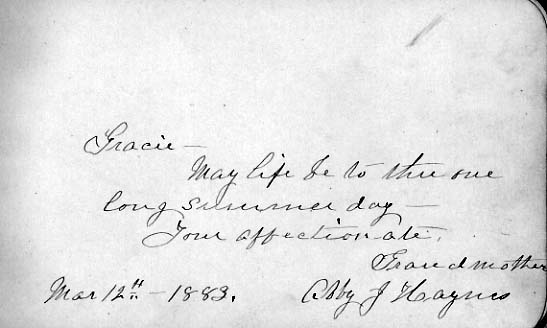 Gracie —
May life be to thee one
long summer day —
Your affectionate.
Grandmother
Mar 12th — 1883. Abby J Haynes